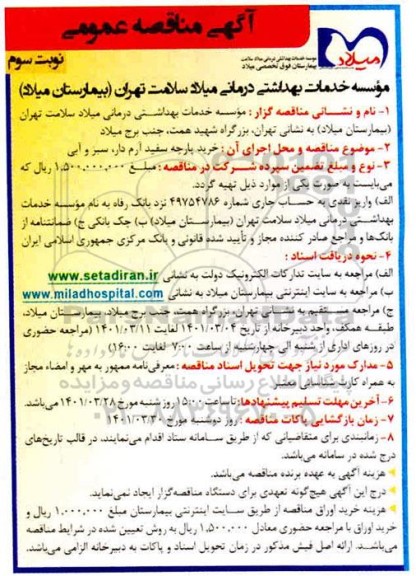 آگهی مناقصه عمومی
میلاد
موسسه خدمات بهداشتی درمانی میلاد سلامت
بیمارستان فوق تخصصی میلاد
نوبت سوم
مؤسسه خدمات بهداشتی درمانی میلاد سلامت تهران (بیمارستان میلاد)
۱- نام و نشـــانی مناقصه گزار : مؤسسه خدمات بهداشتـی درمانی میلاد سلامت تهران
(بیمارستان میلاد) به نشانی تهران، بزرگراه شهید همت، جنب برج میلاد
۲- موضوع مناقصه و محل اجرای آن : خرید پارچه سفید آرم دار، سبز و آبی
۳- نوع و مبلغ تضمین سپرده شرکت در مناقصه : مبلـغ ۱,۵۰۰,۰۰۰,۰۰۰ ریال که
می‌بایست به صورت یکی از موارد ذیل تهیه گردد.
الف) واریز نقدی به حساب جاری شماره ۴۹۷۵۴۷۸۶ نزد بانک رفاه به نام مؤسسه خدمات
بهداشتـی درمانی میلاد سلامت تهران (بیمارستان میلاد) ب) چک بانکی ج) ضمانتنامه از
بانک‌ها و مراجع صادر کننده مجاز و تأیید شده قانونی و بانک مرکزی جمهوری اسلامی ایران
۴- نحوه دریافت اسناد :
الف) مراجعه به سایت تدارکات الکترونیک دولت به نشانی www.setadiran.ir
ب) مراجعه به سایت اینترنتی بیمارستان میلاد به نشانی www.miladhospital.com
ج) مراجعه مستقیم به نشانی تهران، بزرگراه همت، جنب برج میلاد، بیمارستان میلاد،
طبقـه همکف، واحد دبیرخانه از تاریخ ۱۴۰۱/۰۳/۰۴ لغایت ۱۴۰۱/۰۳/۱۱ (مراجعه حضوری
در روزهای اداری از شنبه الی چهارشنبه از ساعت ۷:۰۰ لغایت ۱۶:۰۰)
۵- مدارک مورد نیاز جهت تحویل اسناد مناقصه : معرفی‌نامه ممهور به مهر و امضاء مجاز
به همراه کارت شناسایی معتبر
۶- آخرین مهلت تسلیم پیشنهادها: تا ساعت ۱۵:۰۰ روز شنبه مورخ ۱۴۰۱/۰۳/۲۸ می‌باشد.
۷- زمان بازگشایی پاکات مناقصه : روز دوشنبه مورخ ۱۴۰۱/۰۳/۳۰
۸- زمانبندی برای متقاضیانی که از طریق سامـانه ستاد اقدام می‌نمایند، در قالب تاریخ‌های
درج شده در سامانه می‌باشد.
هزینه آگهی به عهده برنده مناقصه می‌باشد.
درج این آگهی هیچ‌گونه تعهدی برای دستگاه مناقصه‌گزار ایجاد نمی‌نماید.
هزینه خرید اوراق مناقصه از طریق سایت اینترنتی بیمارستان مبلغ ۱,۰۰۰,۰۰۰ ریال و
خرید اوراق با مراجعه حضوری معادل ۱,۵۰۰,۰۰۰ ریال به روش تعیین شده در شرایط مناقصه
می‌باشـد. ارائه اصل فیش مذکور در زمان تحویل اسناد و پاکات به دبیرخانه الزامی می‌باشد.